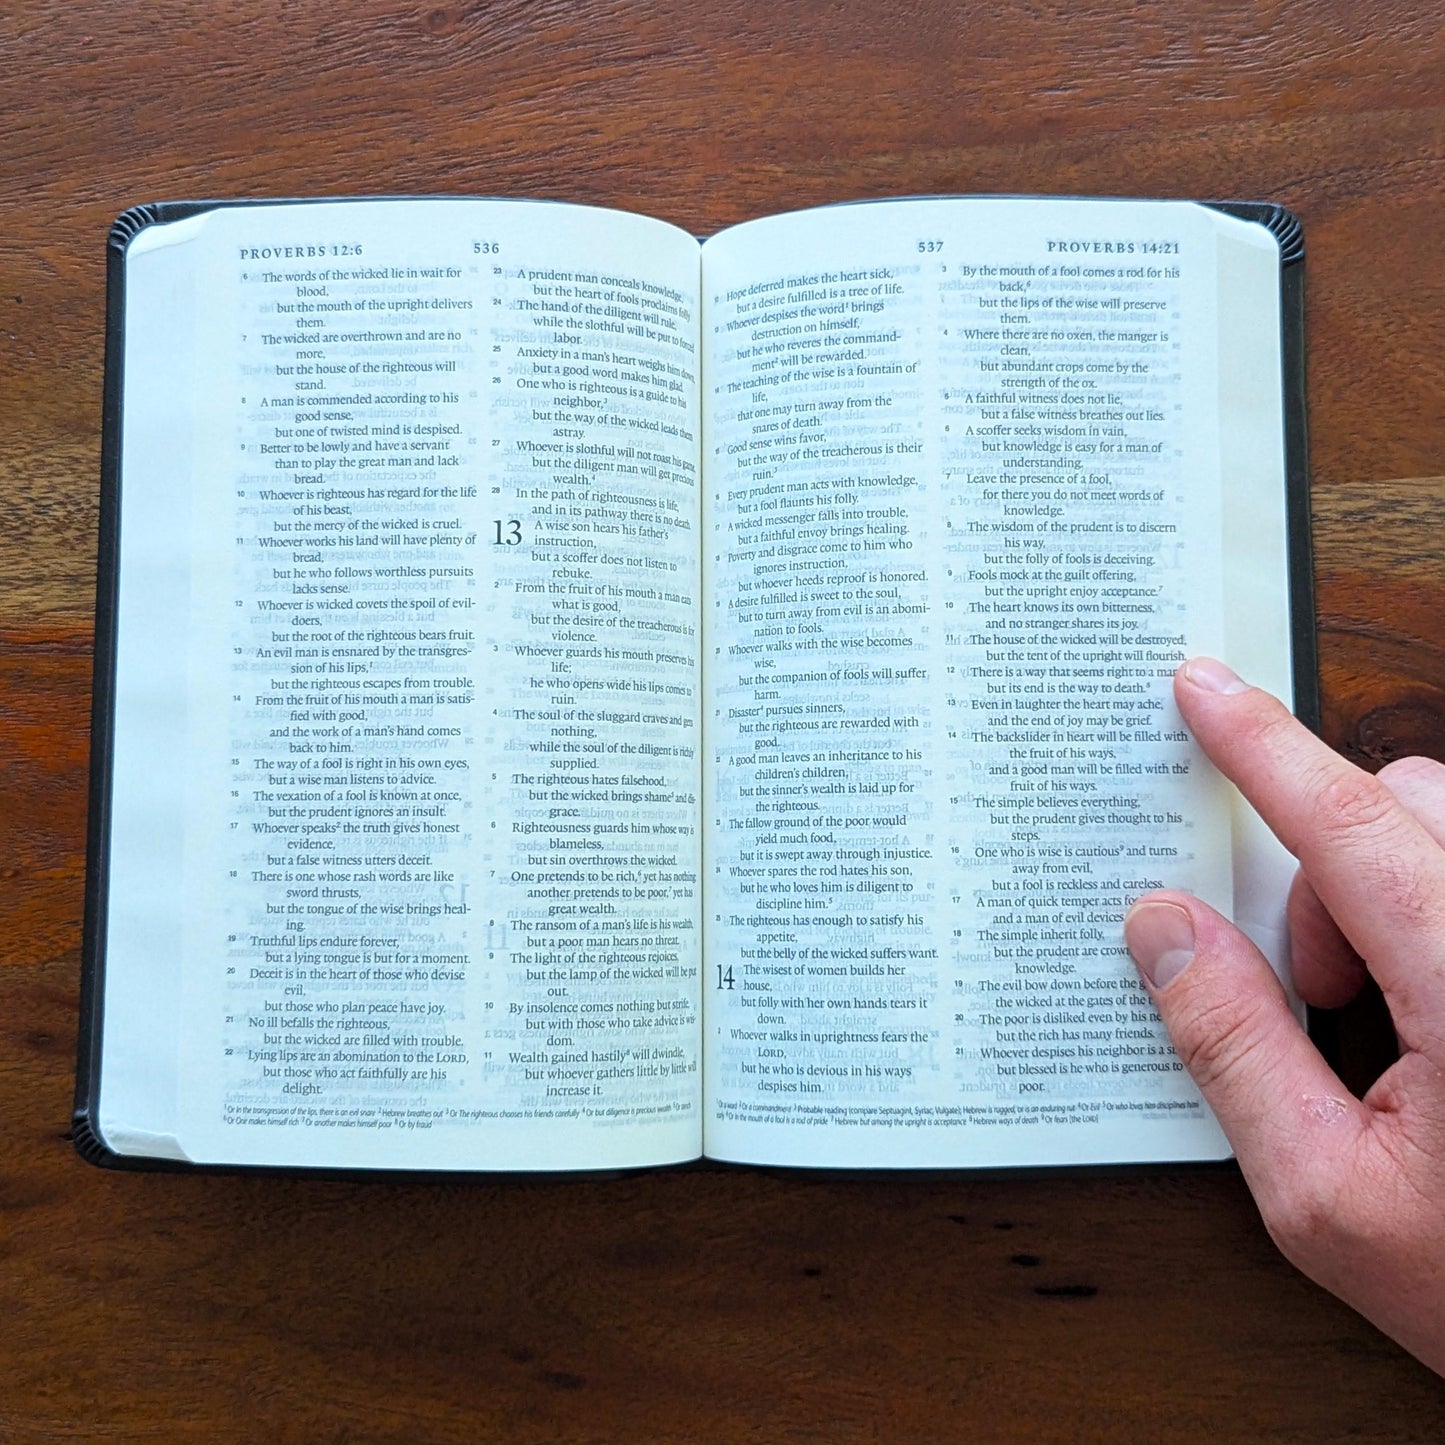 PROVERBS 12:6
536
6 The words of the wicked lie in wait for
blood,
but the mouth of the upright delivers
them.
7 The wicked are overthrown and are no
more,
but the house of the righteous will
stand.
8 A man is commended according to his
good sense,
but one of twisted mind is despised.
9 Better to be lowly and have a servant
than to play the great man and lack
bread.
10 Whoever is righteous has regard for the life
of his beast,
but the mercy of the wicked is cruel.
11 Whoever works his land will have plenty of
bread,
but he who follows worthless pursuits
lacks sense.
12 Whoever is wicked covets the spoil of evil-
doers,
but the root of the righteous bears fruit.
13 An evil man is ensnared by the transgres-
sion of his lips,1
but the righteous escapes from trouble.
14 From the fruit of his mouth a man is satis-
fied with good,
and the work of a man's hand comes
back to him.
15 The way of a fool is right in his own eyes,
but a wise man listens to advice.
16 The vexation of a fool is known at once,
but the prudent ignores an insult.
17 Whoever speaks2 the truth gives honest
evidence,
but a false witness utters deceit.
18 There is one whose rash words are like
sword thrusts,
but the tongue of the wise brings heal-
ing.
19 Truthful lips endure forever,
but a lying tongue is but for a moment.
20 Deceit is in the heart of those who devise
evil,
but those who plan peace have joy.
21 No ill befalls the righteous,
but the wicked are filled with trouble.
22 Lying lips are an abomination to the LORD,
but those who act faithfully are his
delight.
23 A prudent man conceals knowledge,
but the heart of fools proclaims folly
24 The hand of the diligent will rule,
while the slothful will be put to forced
labor.
25 Anxiety in a man's heart weighs him down,
but a good word makes him glad.
26 One who is righteous is a guide to his
neighbor,3
but the way of the wicked leads them
astray.
27 Whoever is slothful will not roast his game,
but the diligent man will get precious
wealth.4
28 In the path of righteousness is life,
and in its pathway there is no death.
13 A wise son hears his father's
instruction,
but a scoffer does not listen to
rebuke.
2 From the fruit of his mouth a man eats
what is good,
but the desire of the treacherous is for
violence.
3 Whoever guards his mouth preserves his
life;
he who opens wide his lips comes to
ruin.
4 The soul of the sluggard craves and gets
nothing,
while the soul of the diligent is richly
supplied.
5 The righteous hates falsehood,
but the wicked brings shame5 and dis-
grace.
6 Righteousness guards him whose way is
blameless,
but sin overthrows the wicked.
7 One pretends to be rich,6 yet has nothing
another pretends to be poor,7 yet has
great wealth.
8 The ransom of a man's life is his wealth,
but a poor man hears no threat.
9 The light of the righteous rejoices,
but the lamp of the wicked will be put
out.
10 By insolence comes nothing but strife,
but with those who take advice is wis-
dom.
11 Wealth gained hastily8 will dwindle,
but whoever gathers little by little will
increase it.
1 Or In the transgression of the lips, there is an evil snare 2 Hebrew breathes out 3 Or The righteous chooses his friends carefully 4 Or but diligence is precious wealth 5 Or
6 Or One makes himself rich 7 Or another makes himself poor 8 Or by fraud
537
PROVERBS 14:21
12 Hope deferred makes the heart sick,
but a desire fulfilled is a tree of life.
13 Whoever despises the word1 brings
destruction on himself,
but he who reveres the command-
ment2 will be rewarded.
14 The teaching of the wise is a fountain of
life,
that one may turn away from the
snares of death.
15 Good sense wins favor,
but the way of the treacherous is their
ruin.3
16 Every prudent man acts with knowledge,
but a fool flaunts his folly.
17 A wicked messenger falls into trouble,
but a faithful envoy brings healing.
18 Poverty and disgrace come to him who
ignores instruction,
but whoever heeds reproof is honored.
19 A desire fulfilled is sweet to the soul,
but to turn away from evil is an abomi-
nation to fools.
20 Whoever walks with the wise becomes
wise,
but the companion of fools will suffer
harm.
21 Disaster4 pursues sinners,
but the righteous are rewarded with
good.
22 A good man leaves an inheritance to his
children's children,
but the sinner's wealth is laid up for
the righteous.
23 The fallow ground of the poor would
yield much food,
but it is swept away through injustice.
24 Whoever spares the rod hates his son,
but he who loves him is diligent to
discipline him.5
25 The righteous has enough to satisfy his
appetite,
but the belly of the wicked suffers want.
14 The wisest of women builds her
house,
but folly with her own hands tears it
down.
2 Whoever walks in uprightness fears the
LORD,
but he who is devious in his ways
despises him.
3 By the mouth of a fool comes a rod for his
back,6
but the lips of the wise will preserve
them.
4 Where there are no oxen, the manger is
clean,
but abundant crops come by the
strength of the ox.
5 A faithful witness does not lie,
but a false witness breathes out lies.
6 A scoffer seeks wisdom in vain,
but knowledge is easy for a man of
understanding.
7 Leave the presence of a fool,
for there you do not meet words of
knowledge.
8 The wisdom of the prudent is to discern
his way,
but the folly of fools is deceiving.
9 Fools mock at the guilt offering,
but the upright enjoy acceptance.7
10 The heart knows its own bitterness,
and no stranger shares its joy.
11 The house of the wicked will be destroyed,
but the tent of the upright will flourish.
12 There is a way that seems right to a man
but its end is the way to death.8
13 Even in laughter the heart may ache,
and the end of joy may be grief.
14 The backslider in heart will be filled with
the fruit of his ways,
and a good man will be filled with the
fruit of his ways.
15 The simple believes everything,
but the prudent gives thought to his
steps.
16 One who is wise is cautious9 and turns
away from evil,
but a fool is reckless and careless.
17 A man of quick temper acts
and a man of evil devices
18 The simple inherit folly,
but the prudent are
knowledge.
19 The evil bow down before the
the wicked at the gates of the
20 The poor is disliked even by his
but the rich has many friends.
21 Whoever despises his neighbor is a
but blessed is he who is generous to
poor.
1 Or a word 2 Or a commandment 3 Probable reading (compare Septuagint, Syriac, Vulgate); Hebrew is rugged, or is an enduring rut 4 Or Evil 5 Or who loves him disciplines him
early 6 Or In the mouth of a fool is a rod of pride 7 Hebrew but among the upright is acceptance 8 Hebrew ways of death 9 Or fears [the LORD]